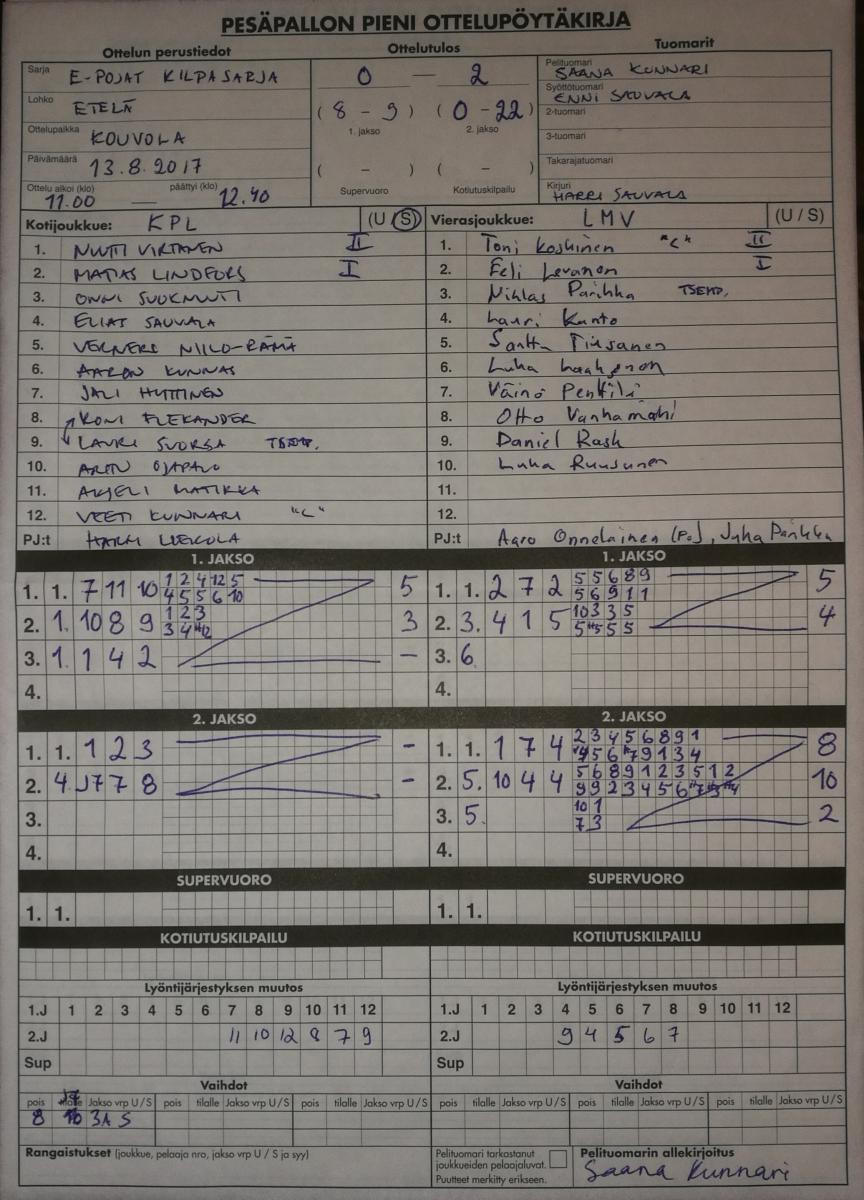 PESÄPALLON PIENI OTTELUPÖYTÄKIRJA
Ottelun perustiedot Ottelutulos Tuomarit
Sarja E-POJAT KILPASARJA
0 — 2
Pelituomari SAANA KUNNARI
Syöttötuomari ENNI SAUVALA
Lohko ETELÄ
(8 - 9) (0 - 22)
1. jakso 2. jakso
2-tuomari
Ottelupaikka KOUVOLA
3-tuomari
Päivämäärä 13.8.2017
( - ) ( - )
Takarajatuomari
Ottelu alkoi (klo) 11.00 — päättyi (klo) 12.40
Supervuoro Kotiutuskilpailu
Kirjuri HARRI SAUVALA
Kotijoukkue: KPL (U / S) Vierasjoukkue: LMV (U / S)
1. NUUTTI VIRTANEN II 1. Toni Koskinen "C" II
2. MATIAS LINDFORS I 2. Eeli Levanen I
3. ONNI SUOKNUUTI 3. Niklas Parikka TSEMP.
4. ELIAS SAUVALA 4. Lauri Kanto
5. VERNERI NIILO-RÄMÄ 5. Santtu Tiusanen
6. AARON KUNNAS 6. Luka
7. JALI HUTTINEN 7. Väinö Penttilä
8. RONI FLEKANDER 8. Otto Vanhamäki
9. LAURI SUORSA TSEMP. 9. Daniel Rask
10. 10. Luka Ruusunen
11. AKSELI MATIKKA 11.
12. VEETI KUNNARI "C" 12.
PJ:t HARRI PJ:t Aaro Onnelainen (Po), Juha Parikka
1. JAKSO 1. JAKSO
1. 1. 7 11 10 1 2 4 12 5 5 1. 1. 2 7 2 5 5 6 8 9 5
4 5 5 6 10 5 6 9 1 1
2. 1. 10 8 9 1 2 3 3 2. 3. 4 1 5 10 3 3 5 4
3 4 #12 5 #5 5 5
3. 1. 1 4 2 – 3. 6
4. 4.
2. JAKSO 2. JAKSO
1. 1. 1 2 3 – 1. 1. 1 7 4 2 3 4 5 6 8 9 1 8
#4 5 6 #7 9 1 3 4
2. 4. J7 7 8 – 2. 5. 10 4 4 5 6 8 9 1 2 3 5 1 2 10
9 9 2 3 4 5 6 #7 #3 #4
3. 3. 5. 10 1 2
7 3
4. 4.
SUPERVUORO SUPERVUORO
1. 1. 1. 1.
KOTIUTUSKILPAILU KOTIUTUSKILPAILU
Lyöntijärjestyksen muutos Lyöntijärjestyksen muutos
1.J 1 2 3 4 5 6 7 8 9 10 11 12 1.J 1 2 3 4 5 6 7 8 9 10 11 12
2.J 11 10 12 8 7 9 2.J 9 4 5 6 7
Sup Sup
Vaihdot Vaihdot
pois tilalle Jakso vrp U / S pois tilalle Jakso vrp U / S pois tilalle Jakso vrp U / S pois tilalle Jakso vrp U / S pois tilalle Jakso vrp U / S pois tilalle Jakso vrp U / S
8 3A S
Rangaistukset (joukkue, pelaaja nro, jakso vrp U / S ja syy)
Pelituomari tarkastanut
joukkueiden pelaajaluvat.
Puutteet merkitty erikseen.
Pelituomarin allekirjoitus
Saana Kunnari